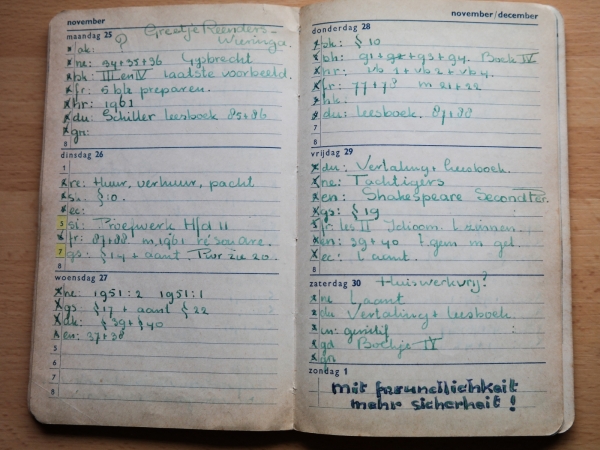 november
maandag 25
Greetje Reenders-
Wieringa.
ak:
ne: 34+35+36 Gijsbrecht
bh: III en IV laatste voorbeeld.
fr: 5 blz preparen.
hr: 1961
du: Schiller leesboek 85+86
gn:
8
dinsdag 26
1
re: Huur, verhuur, pacht
sk: § 10.
ec:
3 si: Proefwerk Hfd II
fr: 87+88 m, 1961
7 gs: § 14 + aant
8
woensdag 27
ne: 1951:2 1951:1
gs: § 17 + aant § 22
ak: § 39 + § 40
en: 37+38
5
6
7
8
november/december
donderdag 28
§ 10
bh: g1+g2+g3+g4. Boek IV.
hr: vb 1+vb 2+vb 4.
fr: 77+7? m 21+22
hk:
du: leesboek. 87+88
7
8
vrijdag 29
du: Vertaling+leesboek.
ne: Tachtigers
en: Shakespeare Second Per.
gs: § 19
fr: les II Idioom. L zinnen.
en: 39+40
ec: L aant.
8
zaterdag 30 Huiswerkvrij?
ne L aant
du Vertaling+leesboek.
en: genitif
gd Boekje IV
gn
zondag 1
mit freundlichkeit
mehr sicherheit!